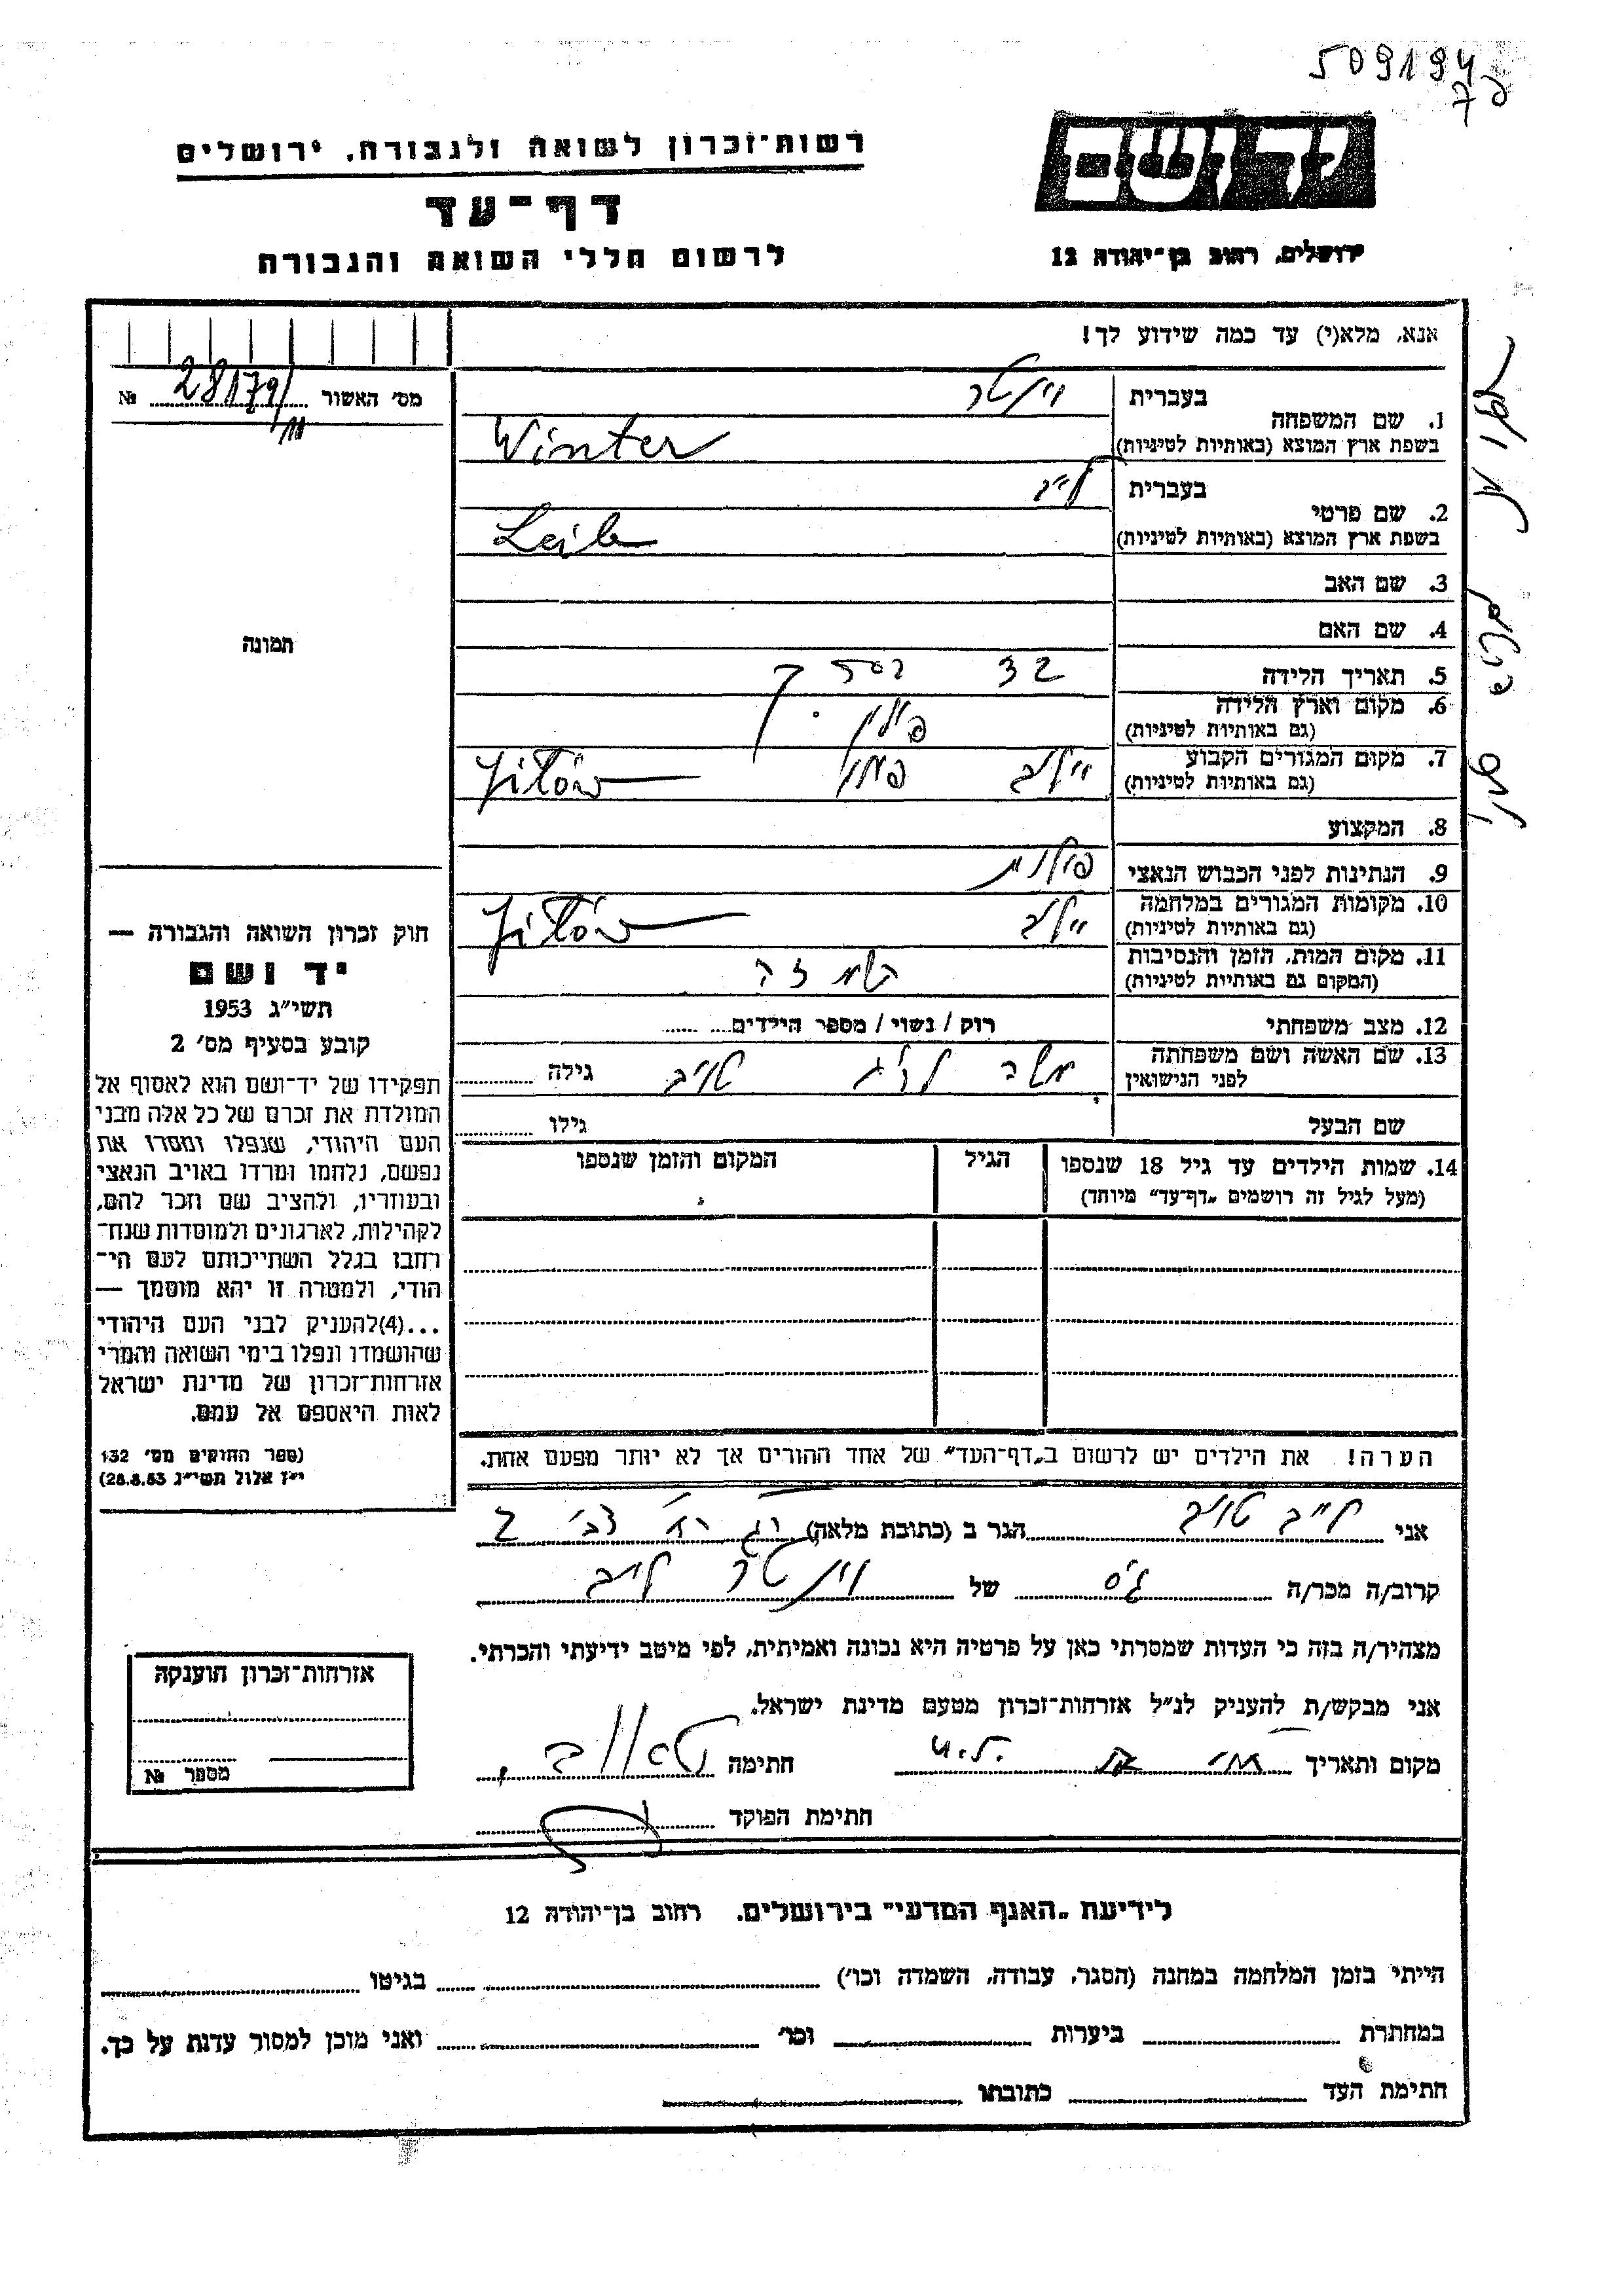 509194
רשות־זכרון לשואה ולגבורה, ירושלים
יד ושם
דף־עד
לרשום חללי השואה והגבורה
ירושלים, רחוב בן־יהודה 12
אנא, מלא(י) עד כמה שידוע לך!
מס׳ האשור 28179/ №
בעברית וינטר
1. שם המשפחה
בשפת ארץ המוצא (באותיות לטיניות) Winter
בעברית לייב
2. שם פרטי
בשפת ארץ המוצא (באותיות לטיניות) Leib
3. שם האב
4. שם האם
תמונה
5. תאריך הלידה 32
6. מקום וארץ הלידה פולין
(גם באותיות לטיניות)
7. מקום המגורים הקבוע
(גם באותיות לטיניות)
8. המקצוע
9. הנתינות לפני הכבוש הנאצי פולנית
10. מקומות המגורים במלחמה
(גם באותיות לטיניות)
11. מקום המות, הזמן והנסיבות
(המקום גם באותיות לטיניות)
12. מצב משפחתי רוק / נשוי / מספר הילדים
13. שם האשה ושם משפחתה גילה
לפני הנישואין
שם הבעל גילו
14. שמות הילדים עד גיל 18 שנספו הגיל המקום והזמן שנספו
(מעל לגיל זה רושמים „דף־עד״ מיוחד)
הערה! את הילדים יש לרשום ב„דף־העד״ של אחד ההורים אך לא יותר מפעם אחת.
חוק זכרון השואה והגבורה —
יד ושם
תשי״ג 1953
קובע בסעיף מס׳ 2
תפקידו של יד־ושם הוא לאסוף אל
המולדת את זכרם של כל אלה מבני
העם היהודי, שנפלו ומסרו את
נפשם, נלחמו ומרדו באויב הנאצי
ובעוזריו, ולהציב שם וזכר להם,
לקהילות, לארגונים ולמוסדות שנח־
רבו בגלל השתייכותם לעם הי־
הודי, ולמטרה זו יהא מוסמך —
...(4)להעניק לבני העם היהודי
שהושמדו ונפלו בימי השואה והמרי
אזרחות־זכרון של מדינת ישראל
לאות היאספם אל עמם.
(ספר החוקים מס׳ 132
י״ז אלול תשי״ג 28.8.53)
אני הגר ב (כתובת מלאה)
קרוב/ה מכר/ה גיס של וינטר לייב
מצהיר/ה בזה כי העדות שמסרתי כאן על פרטיה היא נכונה ואמיתית, לפי מיטב ידיעתי והכרתי.
אני מבקש/ת להעניק לנ״ל אזרחות־זכרון מטעם מדינת ישראל.
מקום ותאריך חתימה
חתימת הפוקד
אזרחות־זכרון הוענקה
מספר №
לידיעת „האגף המדעי״ בירושלים, רחוב בן־יהודה 12
הייתי בזמן המלחמה במחנה (הסגר, עבודה, השמדה וכו׳) בגיטו
במחתרת ביערות וכו׳ ואני מוכן למסור עדות על כך.
חתימת העד כתובתו